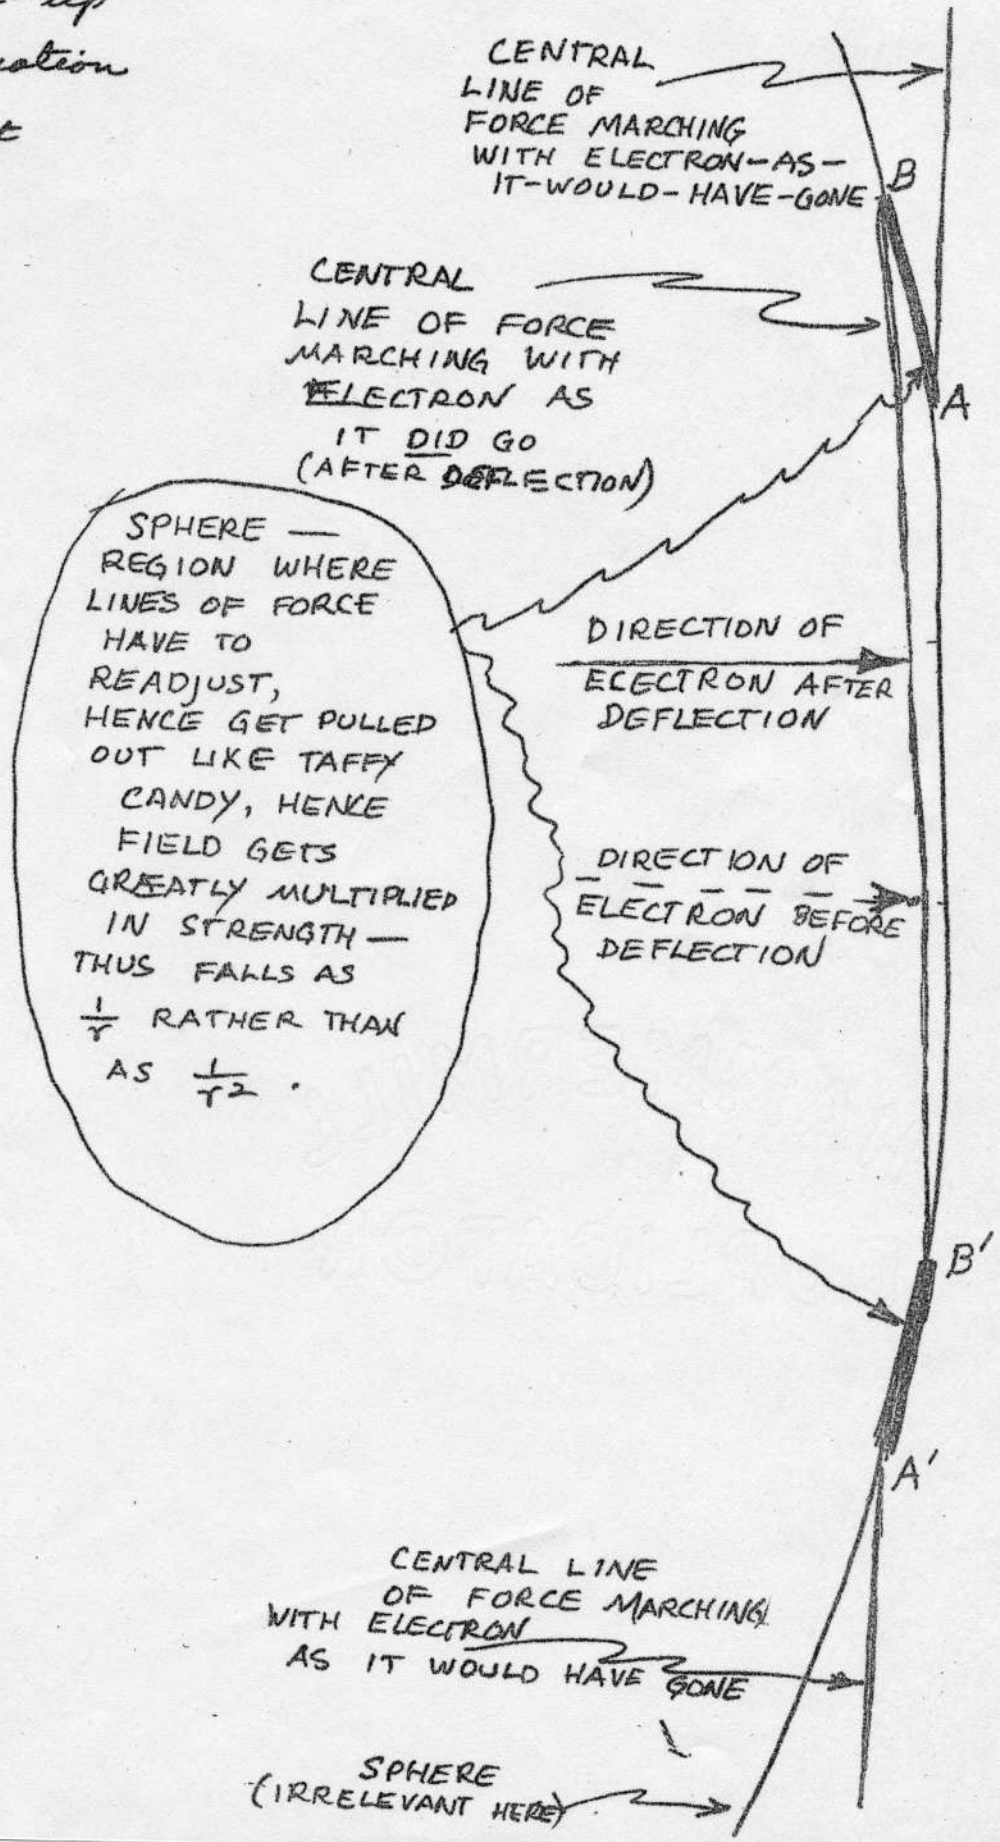 up
t
CENTRAL
LINE OF
FORCE MARCHING
WITH ELECTRON-AS-
IT-WOULD-HAVE-GONE
B
CENTRAL
LINE OF FORCE
MARCHING WITH
ELECTRON AS
IT DID GO
(AFTER DEFLECTION)
A
SPHERE —
REGION WHERE
LINES OF FORCE
HAVE TO
READJUST,
HENCE GET PULLED
OUT LIKE TAFFY
CANDY, HENCE
FIELD GETS
GREATLY MULTIPLIED
IN STRENGTH —
THUS FALLS AS
1/r RATHER THAN
AS 1/r2 .
DIRECTION OF
ECECTRON AFTER
DEFLECTION
DIRECTION OF
ELECTRON BEFORE
DEFLECTION
B'
A'
CENTRAL LINE
OF FORCE MARCHING
WITH ELECTRON
AS IT WOULD HAVE GONE
SPHERE
(IRRELEVANT HERE)